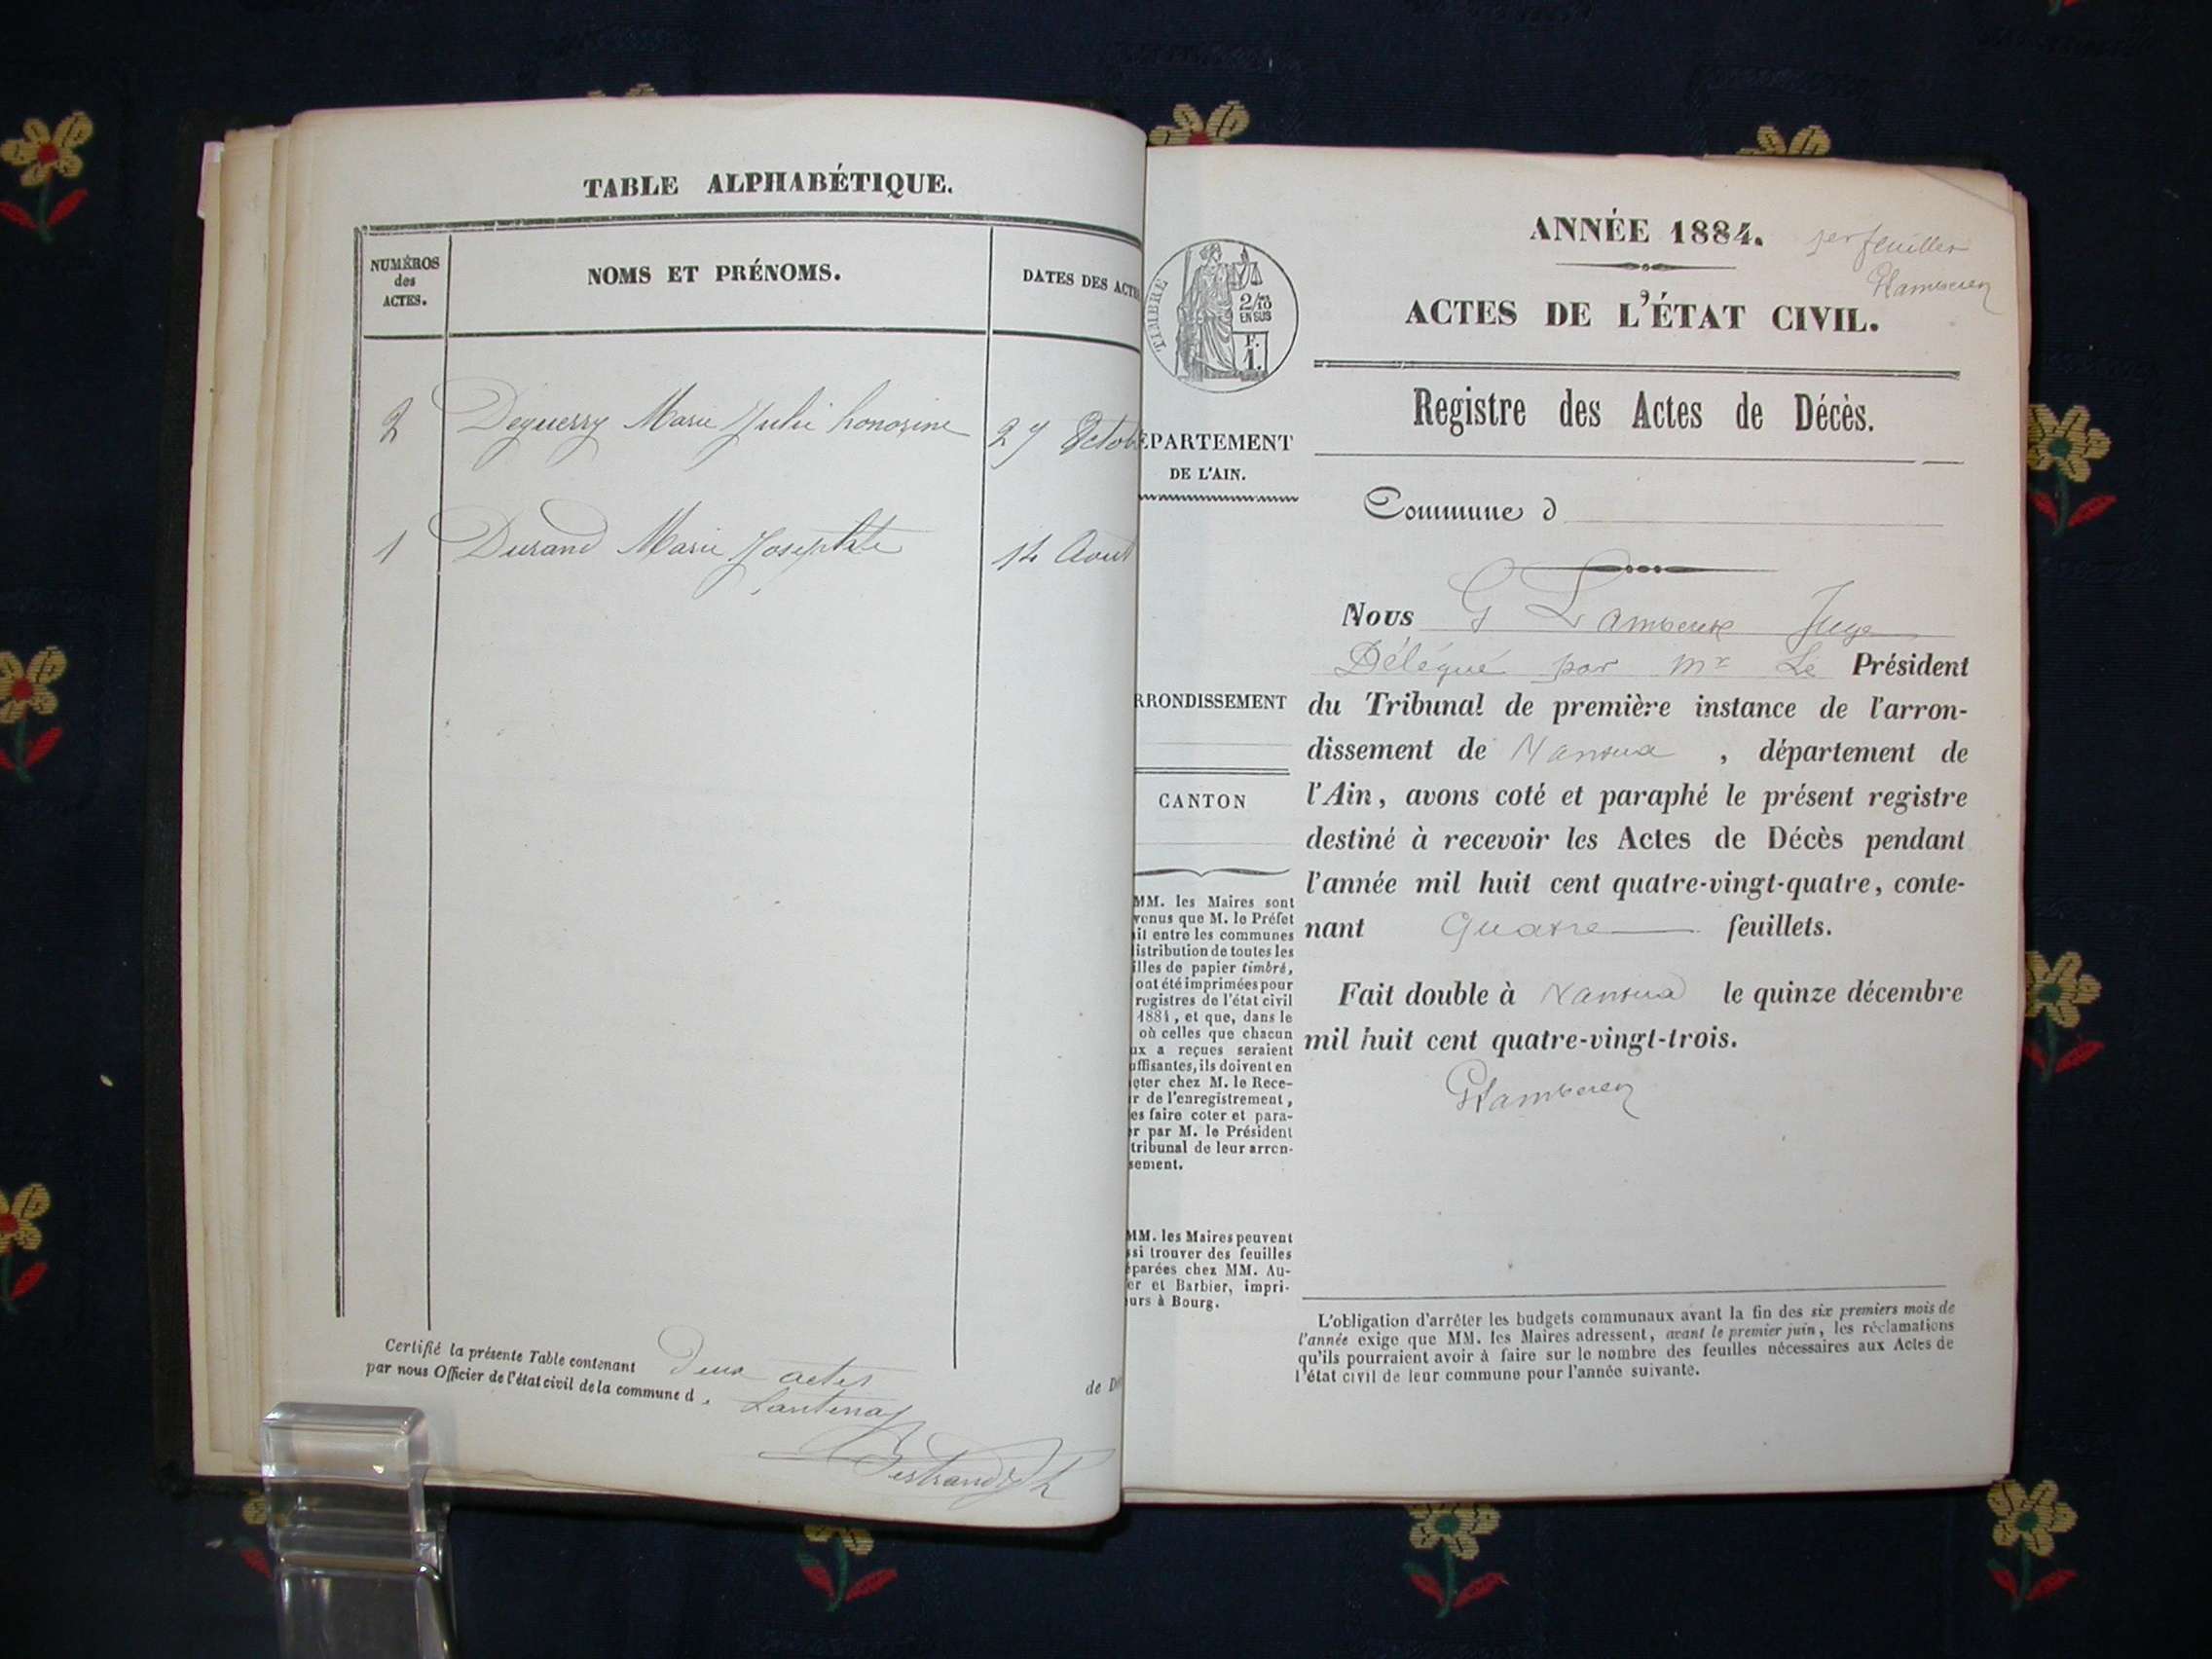 TABLE ALPHABÉTIQUE.
NUMÉROS
des
ACTES.
NOMS ET PRÉNOMS.
DATES DES ACTE
2 Deguerry Marie Julie honorine 27 Octob
1 Durand Marie Josephte 14 Aout
Certifié la présente Table contenant Deux actes de Dé
par nous Officier de l'état civil de la commune d Lantenay
Bertrand
ANNÉE 1884.
1er feuillet
ACTES DE L'ÉTAT CIVIL.
TIMBRE
2/10
EN SUS
F.
1.
Registre des Actes de Décès.
ÉPARTEMENT
DE L'AIN.
Commune d
Nous G Juge
Délégué par Mr Le Président
du Tribunal de première instance de l'arron-
dissement de Nantua , département de
l'Ain, avons coté et paraphé le présent registre
destiné à recevoir les Actes de Décès pendant
l'année mil huit cent quatre-vingt-quatre, conte-
nant Quatre feuillets.
Fait double à Nantua le quinze décembre
mil huit cent quatre-vingt-trois.
RRONDISSEMENT
CANTON
MM. les Maires sont
venus que M. le Préfet
ait entre les communes
distribution de toutes les
illes de papier timbré,
ont été imprimées pour
registres de l'état civil
1884, et que, dans le
où celles que chacun
ux a reçues seraient
uffisantes, ils doivent en
eter chez M. le Rece-
r de l'enregistrement,
es faire coter et para-
er par M. le Président
tribunal de leur arron-
sement.
MM. les Maires peuvent
ssi trouver des feuilles
éparées chez MM. Au-
er et Barbier, impri-
urs à Bourg.
L'obligation d'arrêter les budgets communaux avant la fin des six premiers mois de
l'année exige que MM. les Maires adressent, avant le premier juin, les réclamations
qu'ils pourraient avoir à faire sur le nombre des feuilles nécessaires aux Actes de
l'état civil de leur commune pour l'année suivante.